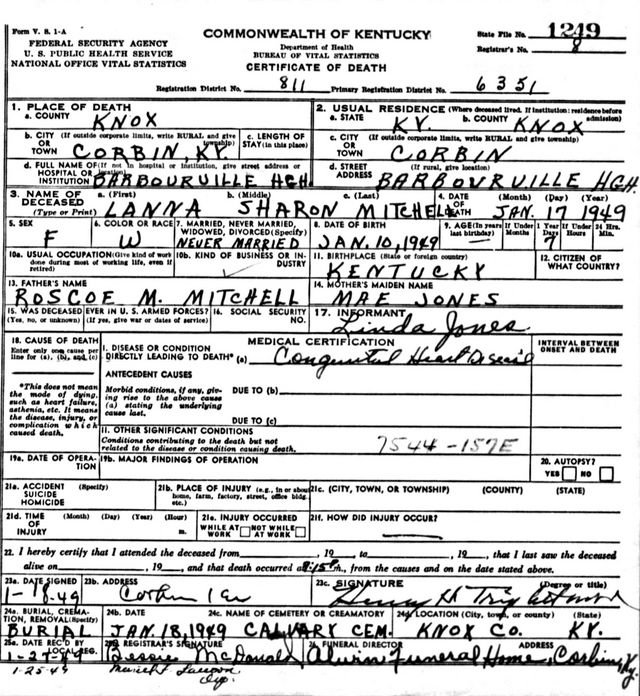 Form V. S. 1-A
COMMONWEALTH OF KENTUCKY
State File No. 1249
FEDERAL SECURITY AGENCY
Department of Health
Registrar's No. 8
U. S. PUBLIC HEALTH SERVICE
BUREAU OF VITAL STATISTICS
NATIONAL OFFICE VITAL STATISTICS
CERTIFICATE OF DEATH
Registration District No. 811 Primary Registration District No. 6351
1. PLACE OF DEATH
a. COUNTY KNOX
2. USUAL RESIDENCE (Where deceased lived. If institution: residence before admission)
a. STATE KY. b. COUNTY KNOX
b. CITY (If outside corporate limits, write RURAL and give township) OR TOWN CORBIN, KY.
c. LENGTH OF STAY (in this place)
c. CITY (If outside corporate limits, write RURAL and give township) OR TOWN CORBIN
d. FULL NAME OF (If not in hospital or institution, give street address or location) HOSPITAL OR INSTITUTION BARBOURVILLE HGH.
d. STREET ADDRESS (If rural, give location) BARBOURVILLE HGH.
3. NAME OF DECEASED (Type or Print) a. (First) b. (Middle) c. (Last)
LANNA SHARON MITCHELL
4. DATE OF DEATH (Month) (Day) (Year) JAN. 17 1949
5. SEX F
6. COLOR OR RACE W
7. MARRIED, NEVER MARRIED, WIDOWED, DIVORCED (Specify) NEVER MARRIED
8. DATE OF BIRTH JAN. 10, 1949
9. AGE (In years last birthday) If Under 1 Year Months Days 7 If Under 24 Hrs. Hours Min.
10a. USUAL OCCUPATION (Give kind of work done during most of working life, even if retired)
10b. KIND OF BUSINESS OR INDUSTRY
11. BIRTHPLACE (State or foreign country) KENTUCKY
12. CITIZEN OF WHAT COUNTRY?
13. FATHER'S NAME ROSCOE M. MITCHELL
14. MOTHER'S MAIDEN NAME MAE JONES
15. WAS DECEASED EVER IN U. S. ARMED FORCES? (Yes, no, or unknown) (If yes, give war or dates of service)
16. SOCIAL SECURITY NO.
17. INFORMANT Linda Jones
18. CAUSE OF DEATH
Enter only one cause per line for (a), (b), and (c)
MEDICAL CERTIFICATION
INTERVAL BETWEEN ONSET AND DEATH
I. DISEASE OR CONDITION DIRECTLY LEADING TO DEATH* (a) Congenital Heart Disease
*This does not mean the mode of dying, such as heart failure, asthenia, etc. It means the disease, injury, or complication which caused death.
ANTECEDENT CAUSES
Morbid conditions, if any, giving rise to the above cause (a) stating the underlying cause last.
DUE TO (b)
DUE TO (c)
II. OTHER SIGNIFICANT CONDITIONS
Conditions contributing to the death but not related to the disease or condition causing death.
7544-157E
19a. DATE OF OPERATION
19b. MAJOR FINDINGS OF OPERATION
20. AUTOPSY? YES NO
21a. ACCIDENT SUICIDE HOMICIDE (Specify)
21b. PLACE OF INJURY (e.g., in or about home, farm, factory, street, office bldg., etc.)
21c. (CITY, TOWN, OR TOWNSHIP) (COUNTY) (STATE)
21d. TIME OF INJURY (Month) (Day) (Year) (Hour) m.
21e. INJURY OCCURRED WHILE AT WORK NOT WHILE AT WORK
21f. HOW DID INJURY OCCUR?
22. I hereby certify that I attended the deceased from , 19 to , 19 , that I last saw the deceased
alive on , 19 , and that death occurred at m., from the causes and on the date stated above.
23a. DATE SIGNED 1-18-49
23b. ADDRESS Corbin
23c. SIGNATURE (Degree or title)
24a. BURIAL, CREMATION, REMOVAL (Specify) BURIAL
24b. DATE JAN. 18, 1949
24c. NAME OF CEMETERY OR CREMATORY CALVARY CEM.
24d. LOCATION (City, town, or county) (State) KNOX CO. KY.
25a. DATE REC'D BY LOCAL REG. 1-27-49
REGISTRAR'S SIGNATURE Bessie McDonald
FUNERAL DIRECTOR ADDRESS Funeral Home, Corbin, Ky.
1-25-49